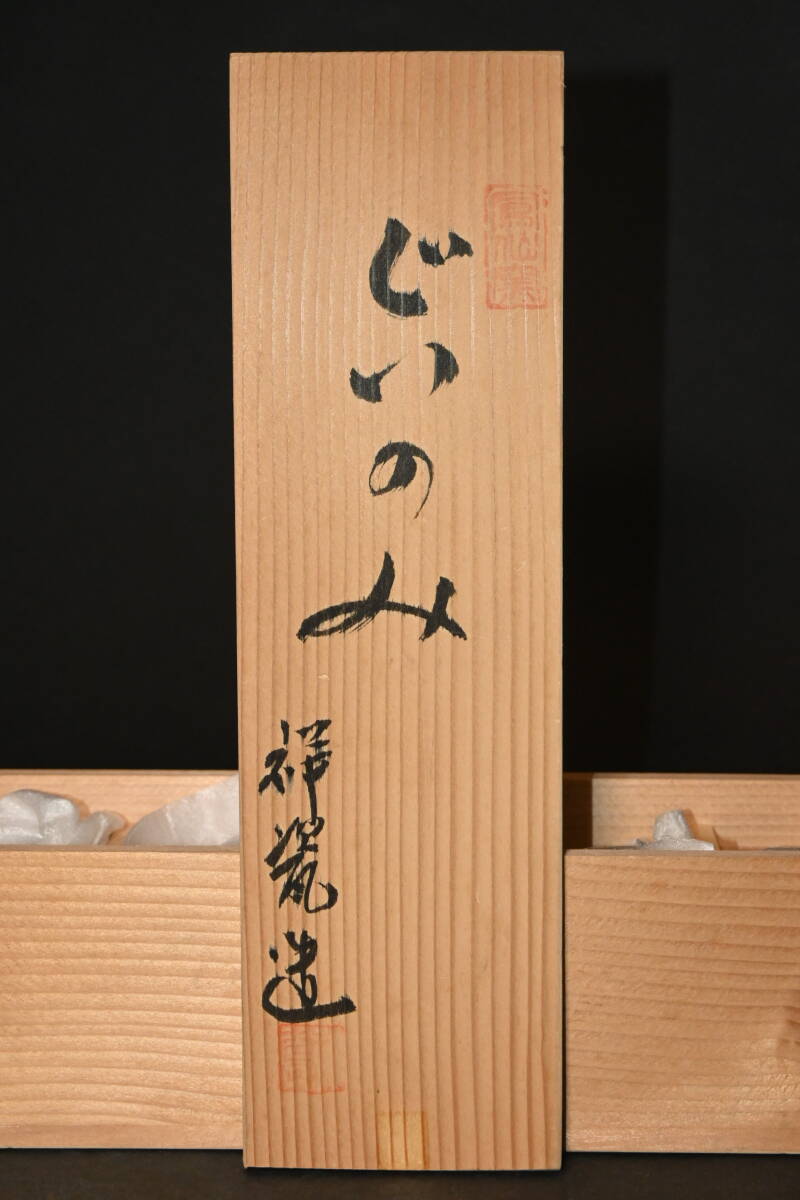 ぐいのみ
祥瓷造